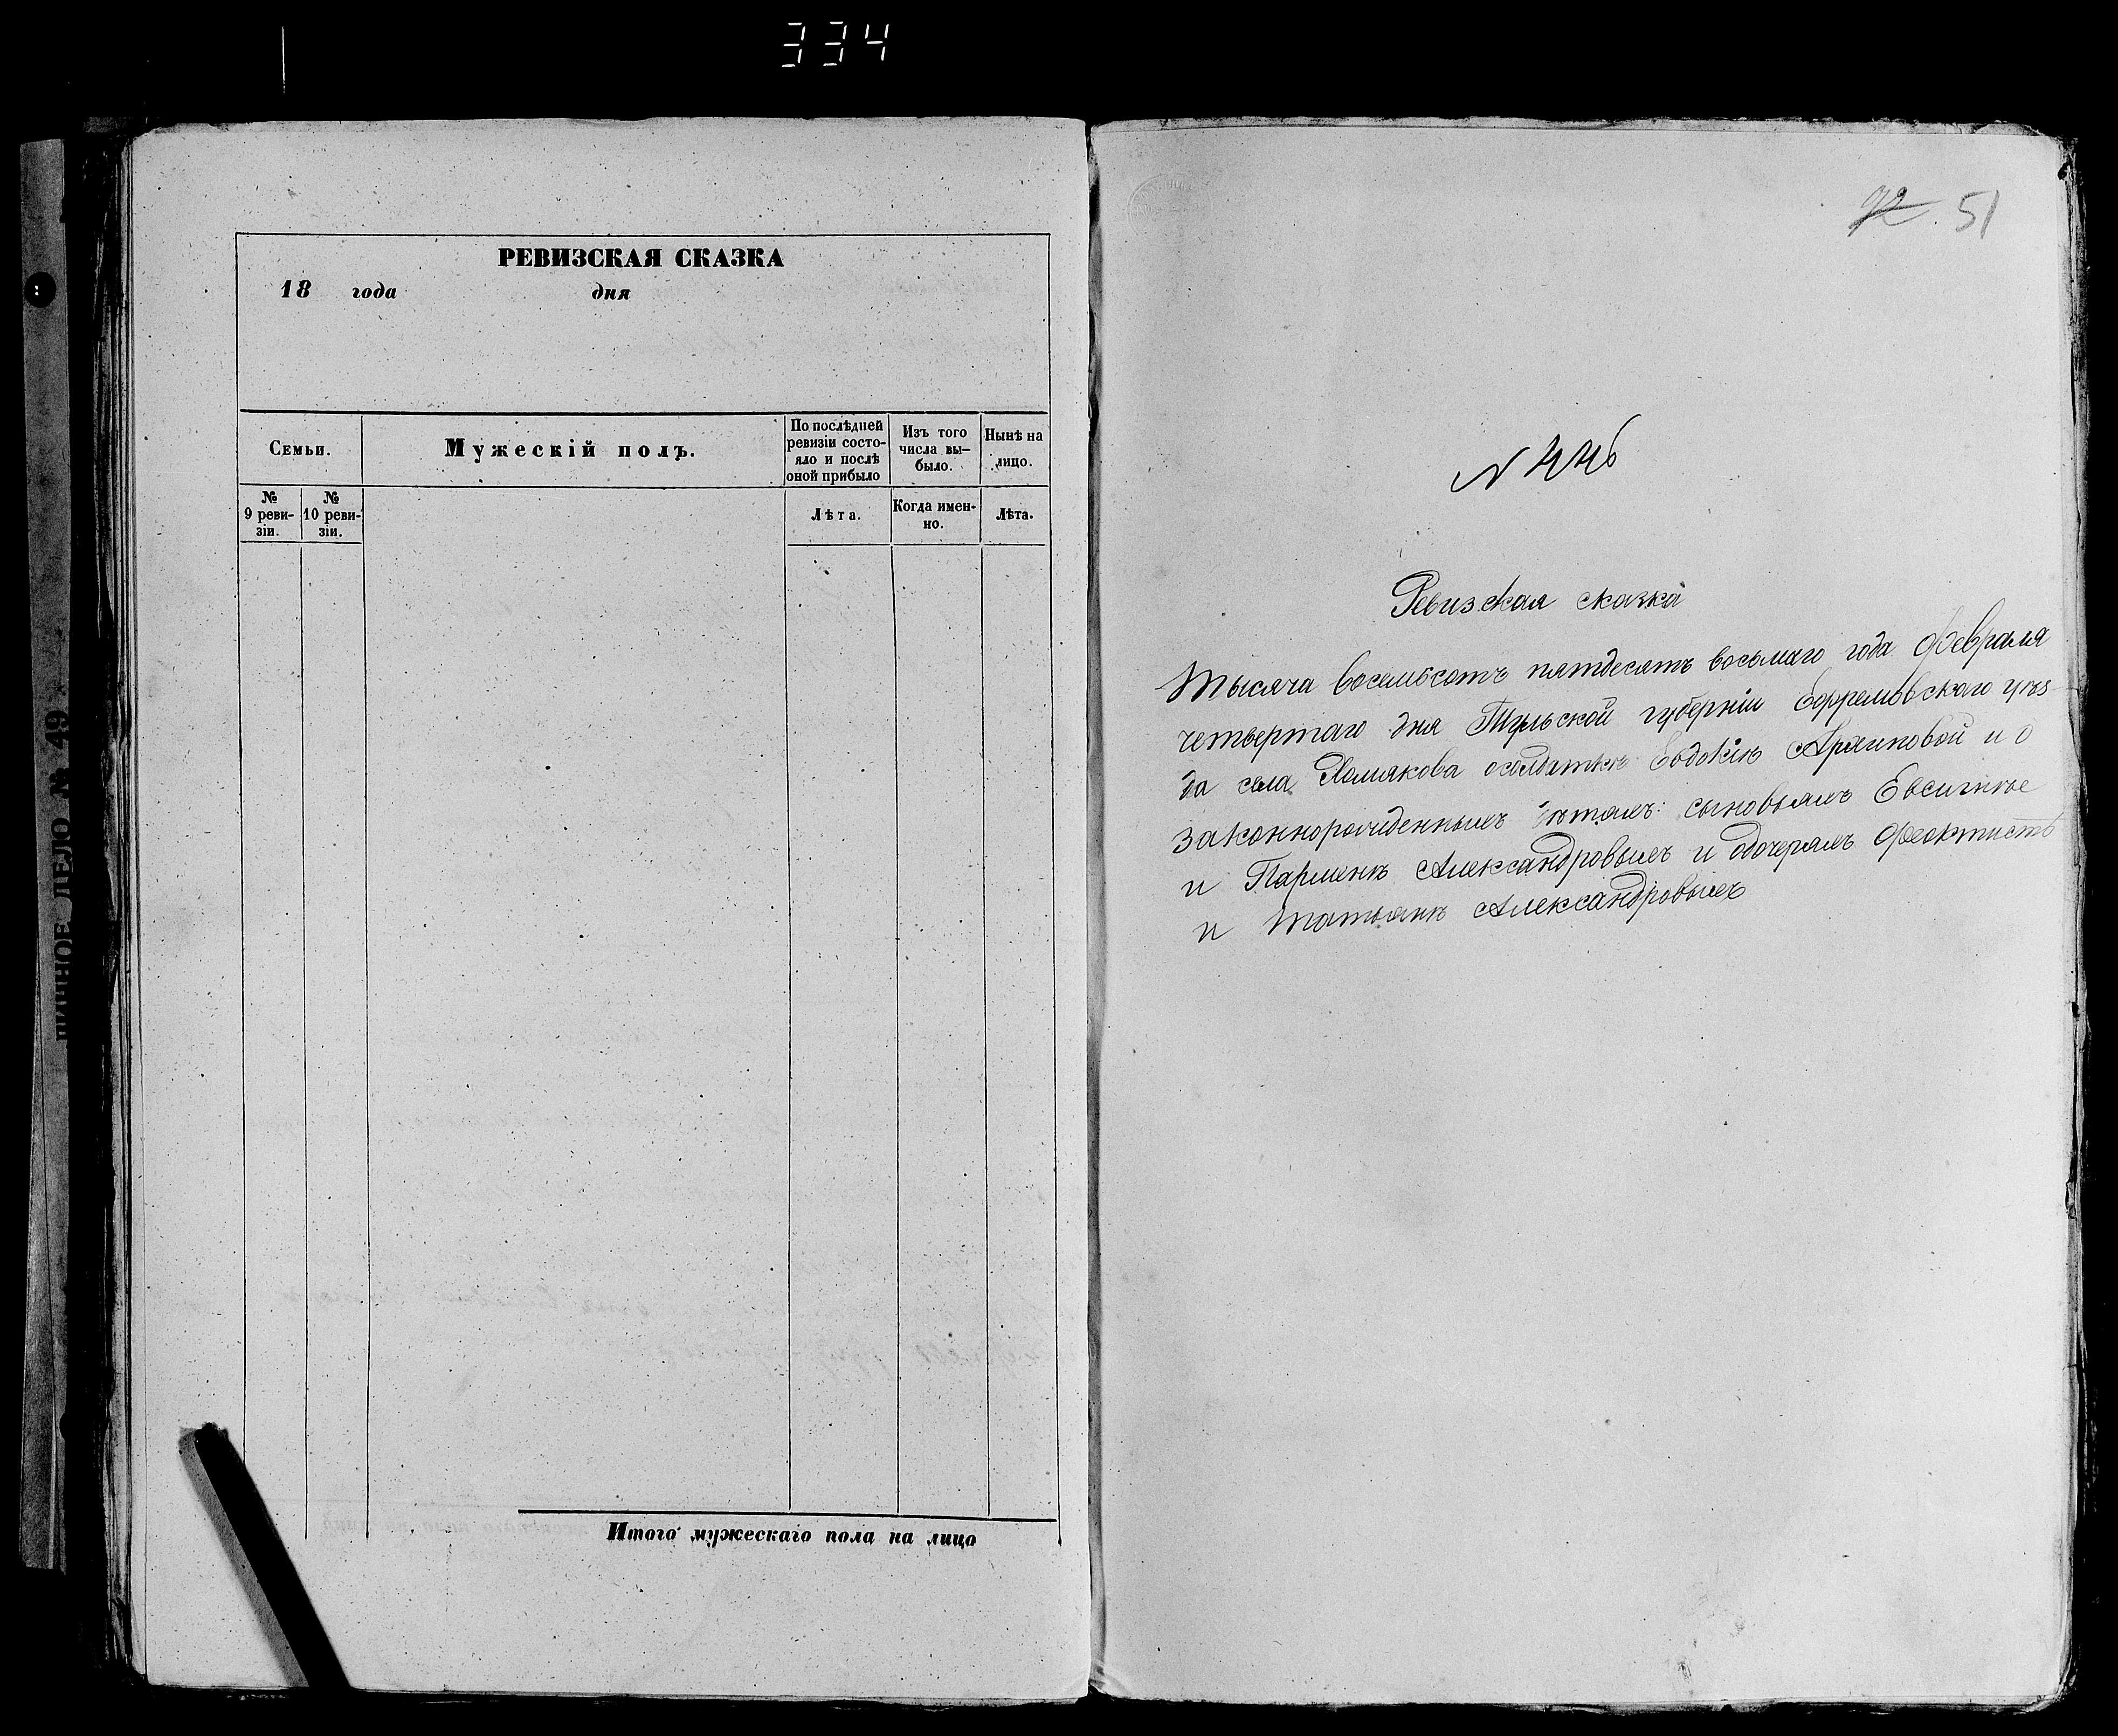 334
РЕВИЗСКАЯ СКАЗКА
18 года дня
Семьи.
Мужескій полъ.
По послѣдней
ревизіи состо-
яло и послѣ
оной прибыло
Изъ того
числа вы-
было.
Нынѣ на
лицо.
№
9 реви-
зіи.
№
10 реви-
зіи.
Лѣта.
Когда имен-
но.
Лѣта.
Итого мужескаго пола на лицо
72. 51
Ревизская сказка
Тысяча восемьсотъ пятдесятъ восьмаго года Февраля
четвертаго дня Тульской губерніи Ефремовскаго уѣз
да села Хомякова осолдаткѣ Евдокіѣ Архиповой и о
законнорожденныхъ дѣтяхъ: сыновьяхъ Евсигнѣе
и Парменѣ Александровыхъ и одочеряхъ Феоктистѣ
и Татьянѣ Александровыхъ